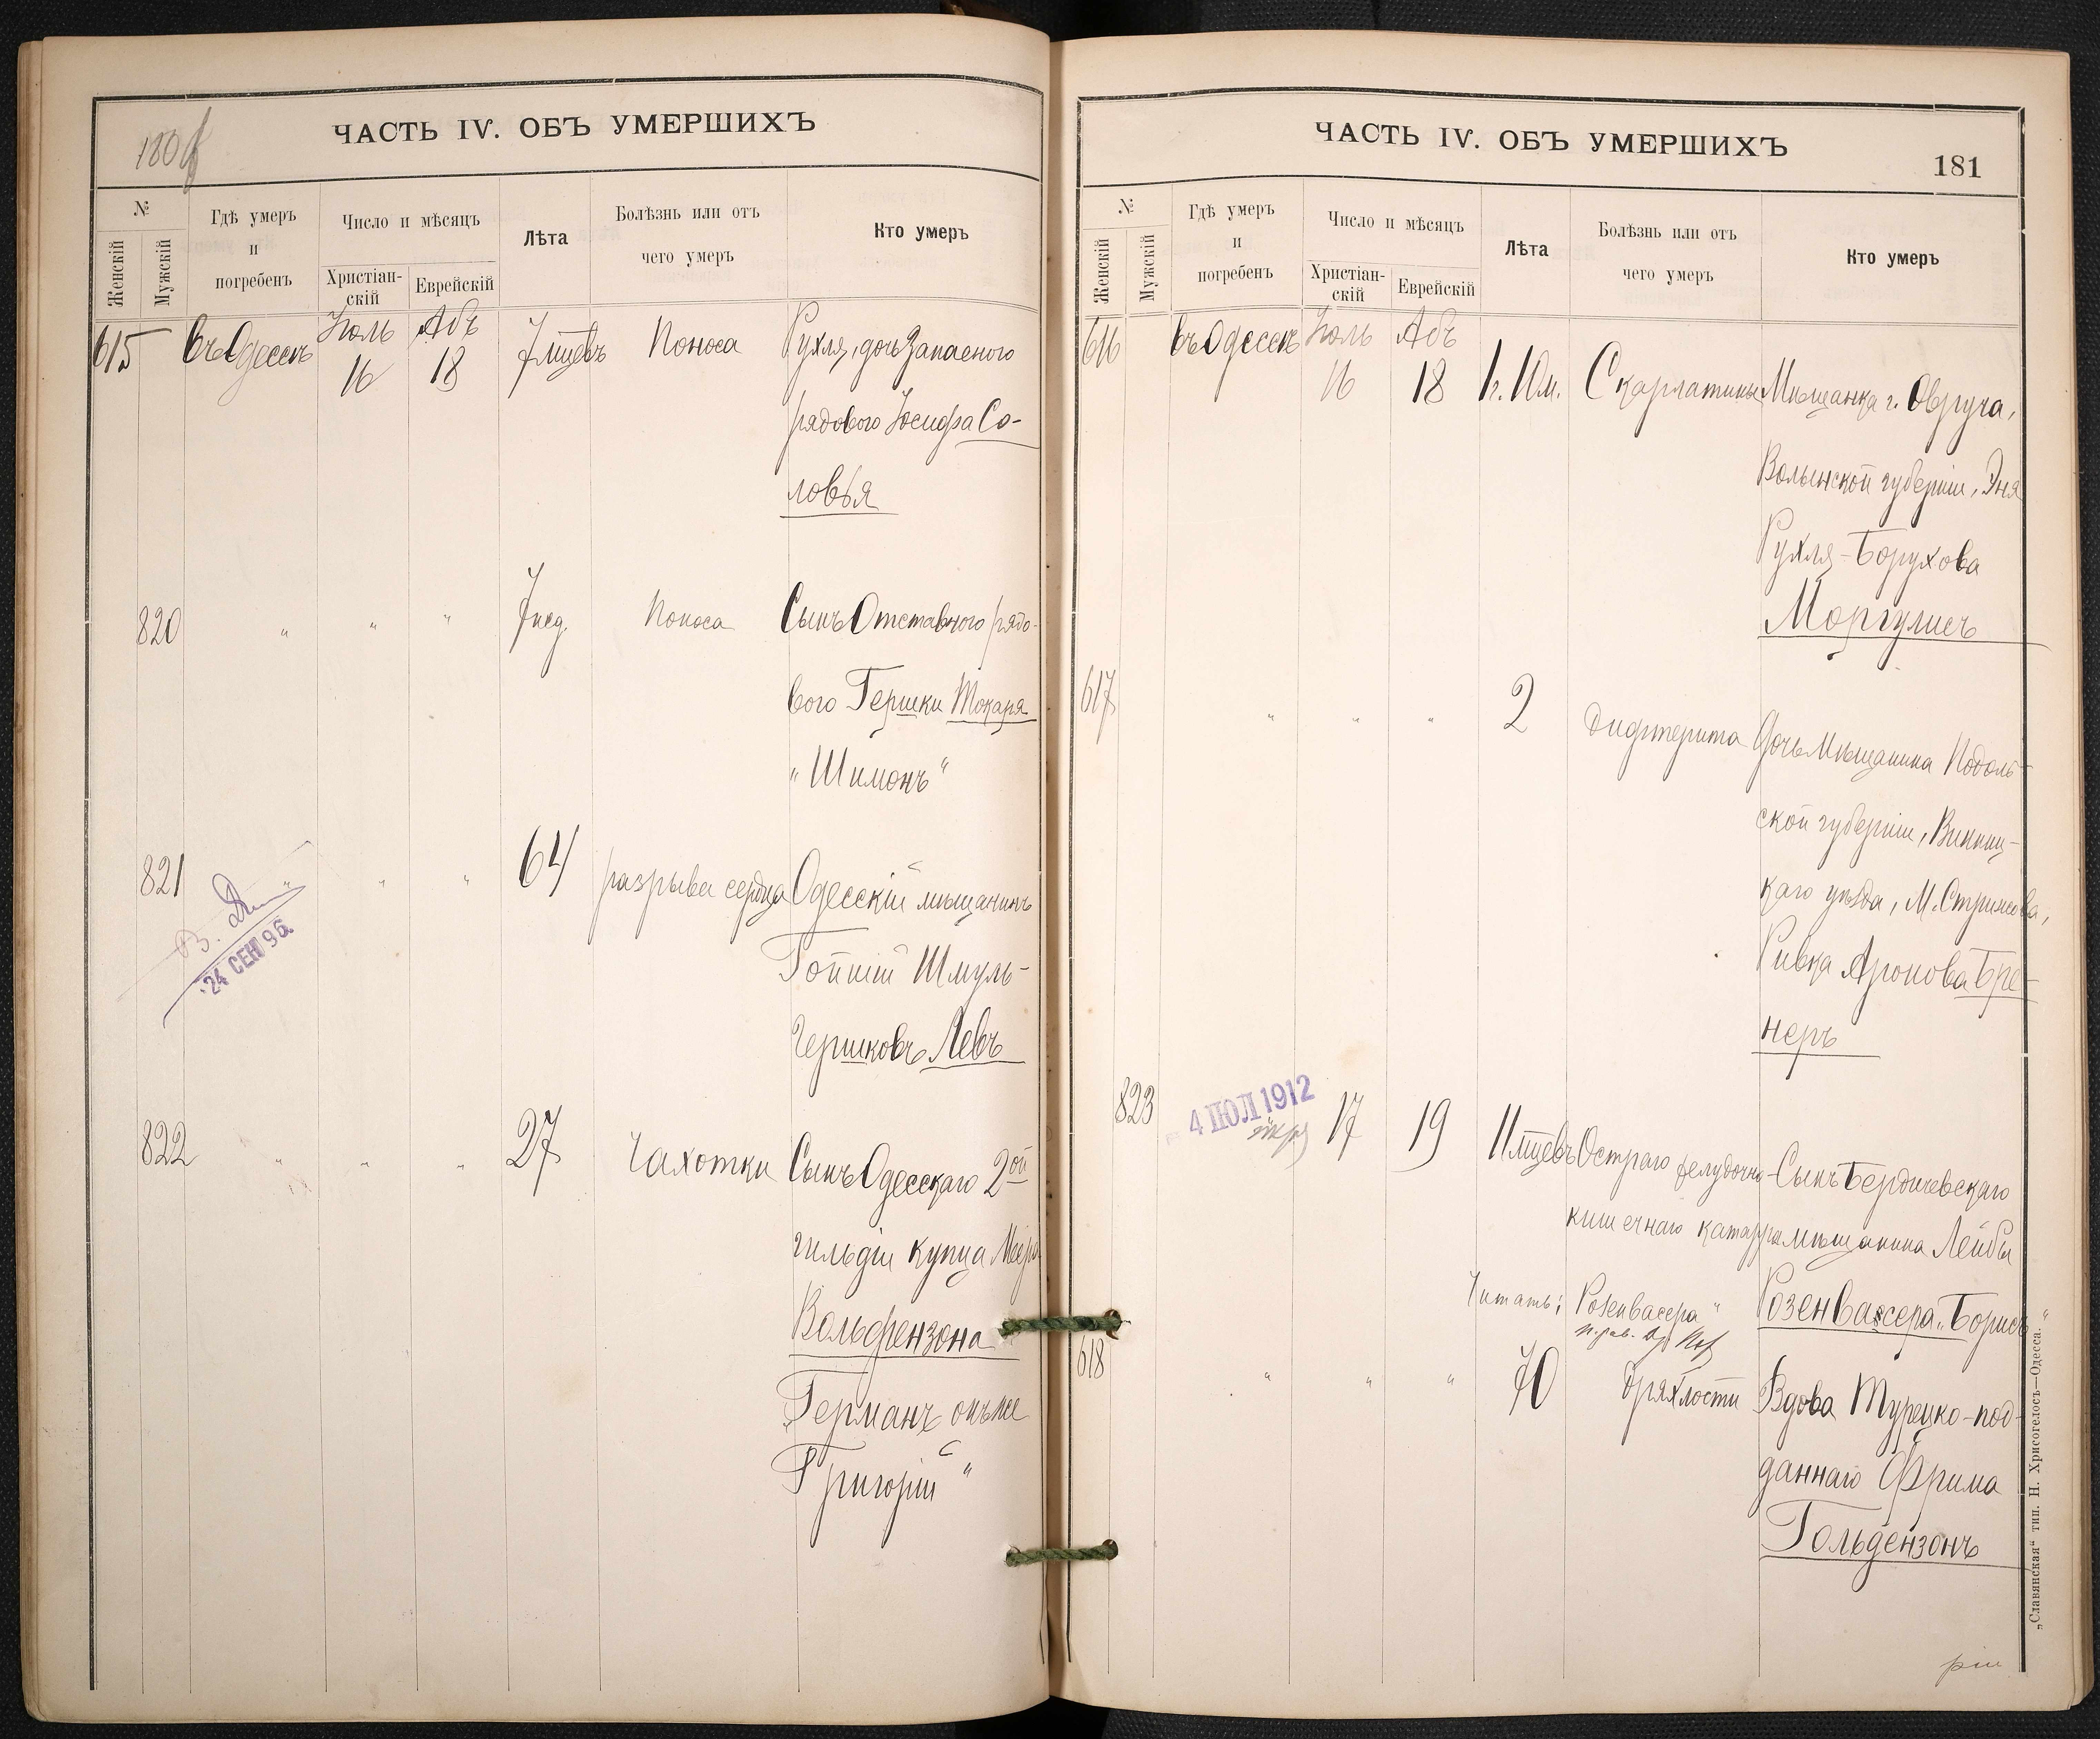 ЧАСТЬ IV. ОБЪ УМЕРШИХЪ
№
Женскій
Мужскій
Гдѣ умеръ
и
погребенъ
Число и мѣсяцъ
Христіан-
скій
Еврейскій
Лѣта
Болѣзнь или отъ
чего умеръ
Кто умеръ
615 въ Одессѣ Іюль 16 Абъ 18 7 мцевъ Поноса Рухля, дочь Запасного
рядового Іосифа Со-
ловья
820 " " " 7 нед. Поноса Сынъ Отставного рядо-
вого Гершки Токаря
"Шимонъ"
821 " " " 64 разрыва сердца Одесскій мѣщанинъ
Гойшій Шмуль-
Гершковъ Левъ
24 СЕН 96
822 " " " 27 Чахотки Сынъ Одесскаго 2ой
гильдіи купца Меера
Вольфензона
Германъ онъ же
Григорій"
ЧАСТЬ IV. ОБЪ УМЕРШИХЪ
181
№
Женскій
Мужскій
Гдѣ умеръ
и
погребенъ
Число и мѣсяцъ
Христіан-
скій
Еврейскій
Лѣта
Болѣзнь или отъ
чего умеръ
Кто умеръ
616 въ Одессѣ Іюль 16 Абъ 18 1г. 10м. Скарлатины Мѣщанка г. Овруча,
Волынской губерніи, Эня
Рухля-Борухова
Моргулисъ
617 " " " 2 Дифтерита Дочь Мѣщанина Подоль-
ской губерніи, Винниц-
каго уѣзда, М. Стрижовка,
Ривка Аронова Бре-
неръ
823 4 ІЮЛ 1912 17 19 11 мцевъ Остраго желудочно- Сынъ Бердичевскаго
кишечнаго катарра мѣщанина Лейбы
Читать: Розенвасера" Розенвассера "Борисъ"
618 " " " 70 Дряхлости Вдова Турецко-под-
даннаго Фрима
Гольдензонъ
„Славянская“ тип. Н. Хрисогелосъ—Одесса.